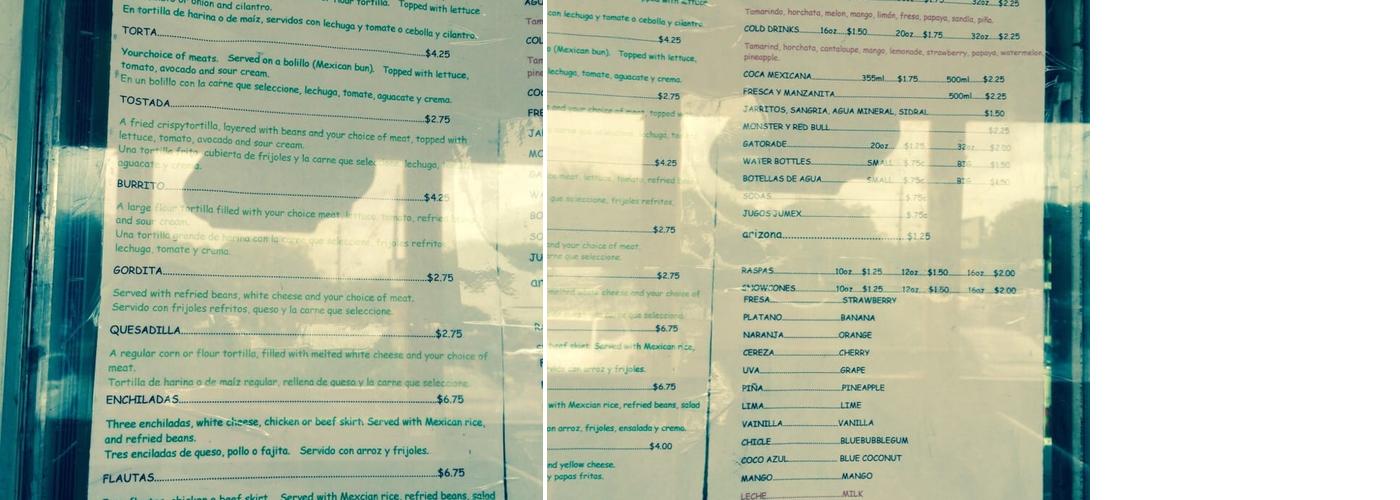 onion and cilantro.
En tortilla de harina o de maíz, servidos con lechuga y tomate o cebolla y cilantro.
TORTA $4.25
Yourchoice of meats. Served on a bolillo (Mexican bun). Topped with lettuce,
tomato, avocado and sour cream.
En un bolillo con la carne que seleccione, lechuga, tomate, aguacate y crema.
TOSTADA $2.75
A fried crispytortilla, layered with beans and your choice of meat, topped with
lettuce, tomato, avocado and sour cream.
Una tortilla frita cubierta de frijoles y la carne que seleccione lechuga,
aguacate y crema.
BURRITO $4.25
A large flour tortilla filled with your choice meat, lettuce, tomato, refried beans
and sour cream.
Una tortilla grande de harina con la carne que seleccione, frijoles refritos,
lechuga, tomate y crema.
GORDITA $2.75
Served with refried beans, white cheese and your choice of meat.
Servido con frijoles refritos, queso y la carne que seleccione.
QUESADILLA $2.75
A regular corn or flour tortilla, filled with melted white cheese and your choice of
meat.
Tortilla de harina o de maíz regular, rellena de queso y la carne que seleccione.
ENCHILADAS $6.75
Three enchiladas, white cheese, chicken or beef skirt. Served with Mexican rice,
and refried beans.
Tres enciladas de queso, pollo o fajita. Servido con arroz y frijoles.
FLAUTAS $6.75
con lechuga y tomate o cebolla y cilantro.
$4.25
(Mexican bun). Topped with lettuce,
lechuga, tomate, aguacate y crema.
$2.75
and your choice of meat, topped w
$4.25
que seleccione, frijoles refritos,
$2.75
and your choice of meat.
$2.75
melted white cheese and your choice of
$6.75
beef skirt. Served with Mexican rice,
y frijoles.
$6.75
with Mexcian rice, refried beans, salad
con arroz, frijoles, ensalada y crema.
$4.00
and yellow cheese.
y papas fritas.
32oz $2.25
Tamarindo, horchata, melon, mango, limón, fresa, papaya, sandia, piña.
COLD DRINKS 16oz $1.50 20oz $1.75 32oz $2.25
Tamarind, horchata, cantaloupe, mango, lemonade, strawberry, papaya, watermelon,
pineapple.
COCA MEXICANA 355ml $1.75 500ml $2.25
FRESCA Y MANZANITA 500ml $2.25
JARRITOS, SANGRIA, AGUA MINERAL, SIDRAL $1.50
MONSTER Y RED BULL $2.25
GATORADE 20oz $1.25 32oz $2.00
WATER BOTTLES SMALL $.75c BIG $1.50
BOTELLAS DE AGUA SMALL $.75c BIG $1.50
SODAS $.75c
JUGOS JUMEX $.75c
arizona $1.25
RASPAS 10oz $1.25 12oz $1.50 16oz $2.00
SNOWCONES 10oz $1.25 12oz $1.50 16oz $2.00
FRESA STRAWBERRY
PLATANO BANANA
NARANJA ORANGE
CEREZA CHERRY
UVA GRAPE
PIÑA PINEAPPLE
LIMA LIME
VAINILLA VANILLA
CHICLE BLUEBUBBLEGUM
COCO AZUL BLUE COCONUT
MANGO MANGO
LECHE MILK